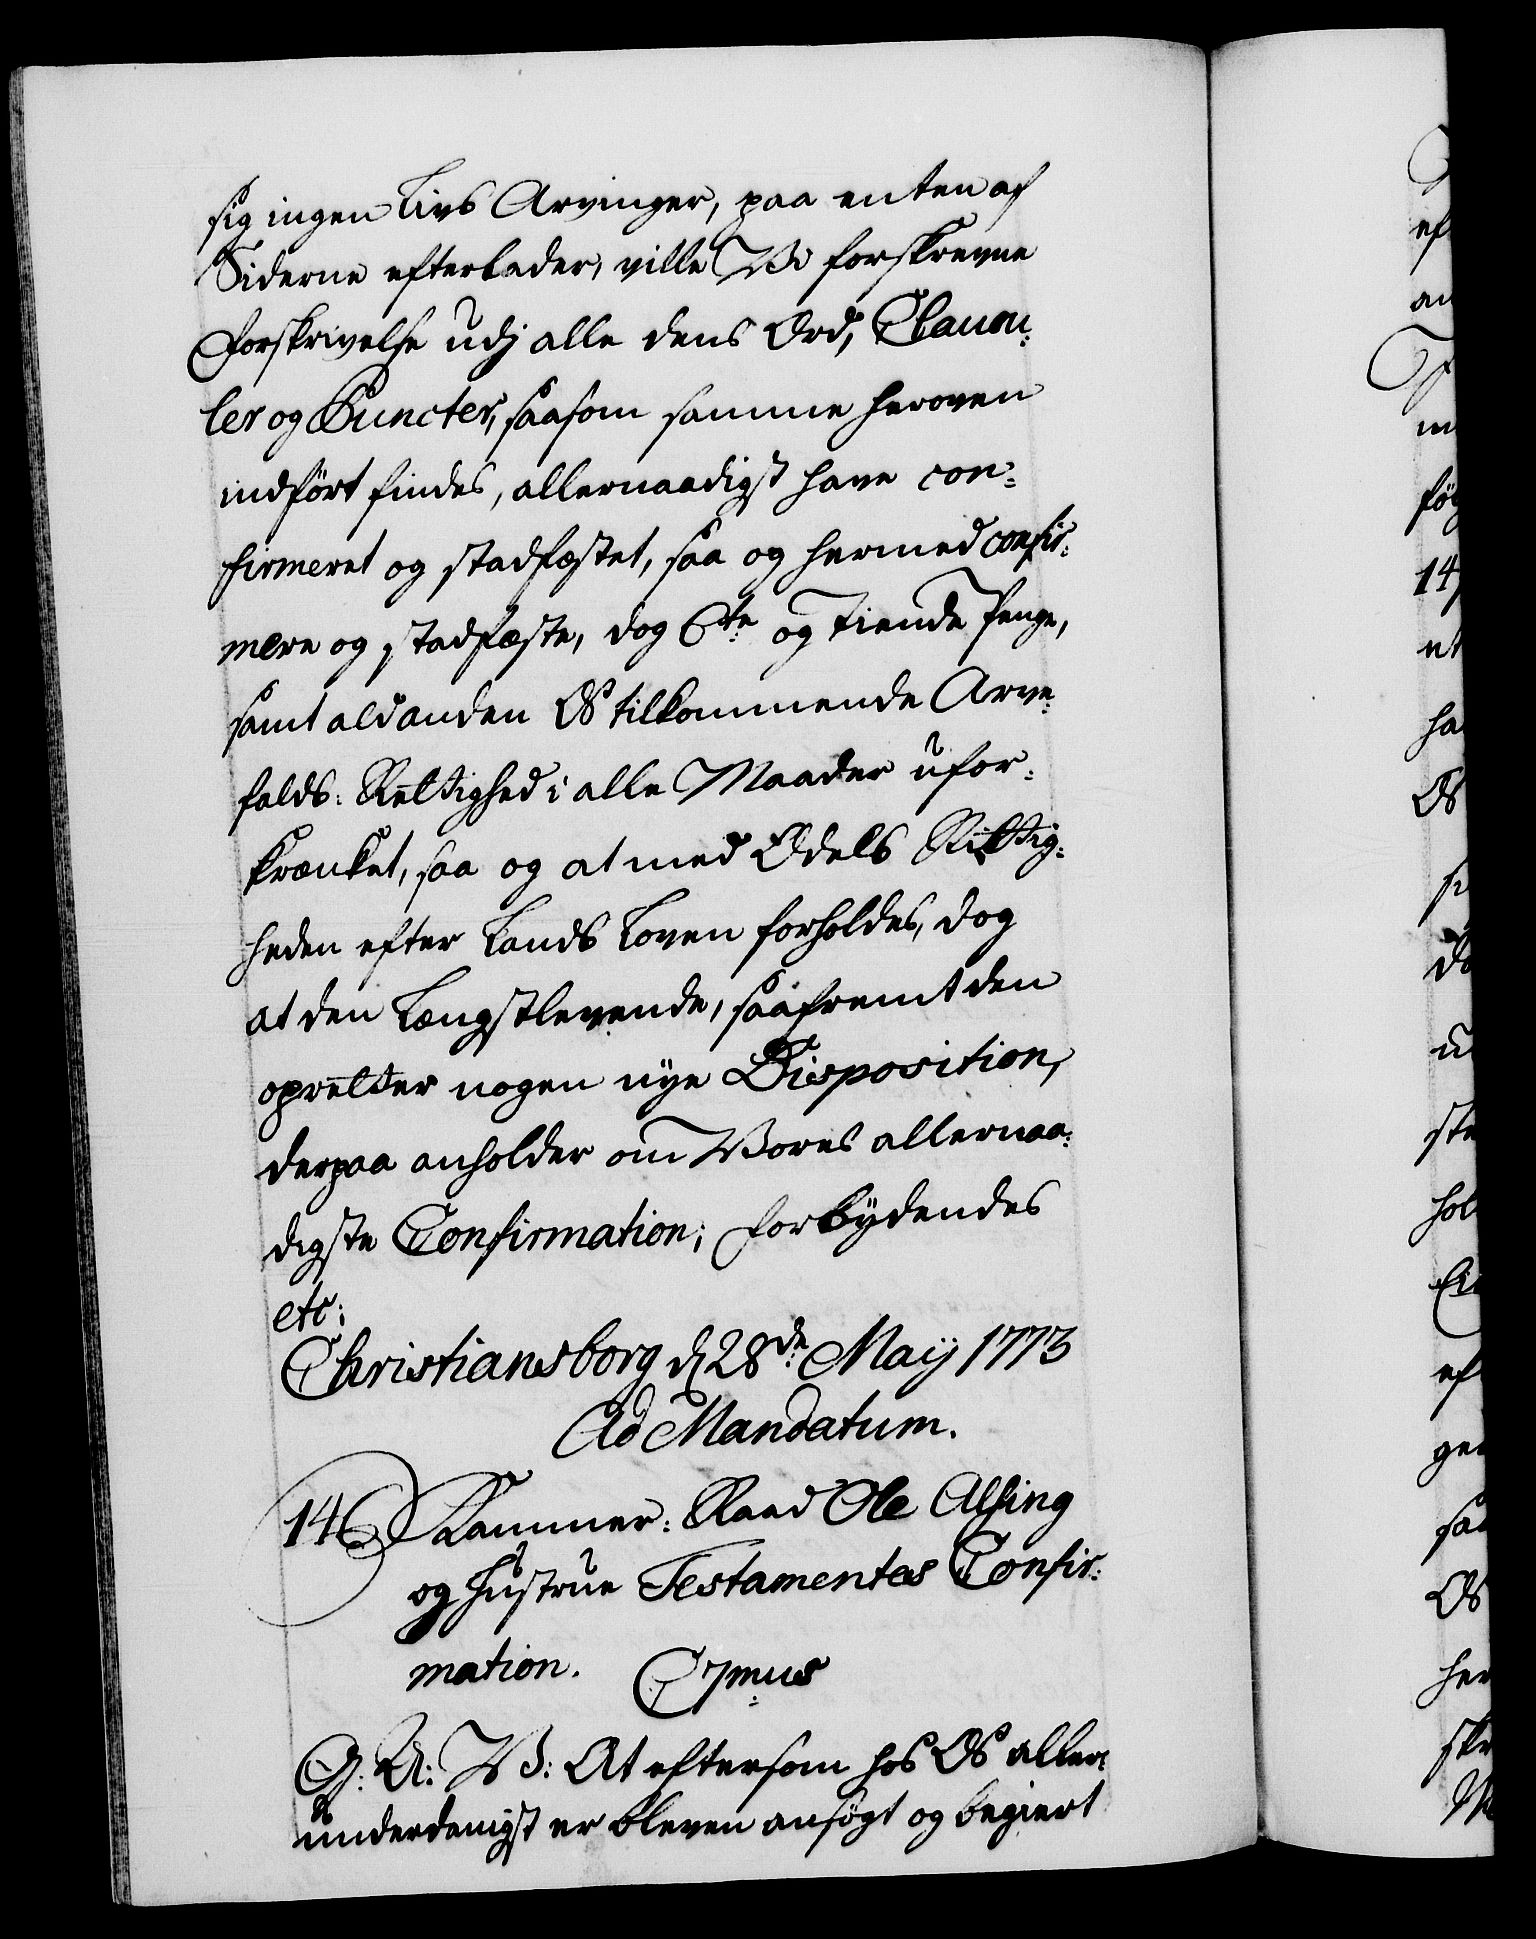 sig ingen Livs Arvinger, paa enten af
Siderne efterlader, ville Vi forskrevne
Forskrivelse udj alle dens Ord, Clausu-
ler og Puncter, saasom samme heroven
indført findes, allernaadigst have con-
firmeret og stadfæstet, saa og hermed confir-
mere og stadfæste, dog 6te og Tiende Penge,
samt ald anden Os tilkommende Arve-
falds-Rettighed i alle Maader ufor-
krænket, saa og at med Odels Rettig-
heden efter Lands Loven forholdes, dog
at den Længstlevende, saafremt den
opretter nogen nye Disposition,
derpaa anholder om Vores allernaa-
digste Confirmation; forbydendes
etc:
Christiansborg d 28de Maij 1773
Ad Mandatum.
146 Kammer-Raad Ole Alsing
og Hustrue Testamentes Confir-
mation. C7mus
G: A: V: At eftersom hos Os aller-
underdanigst er bleven ansøgt og begiert